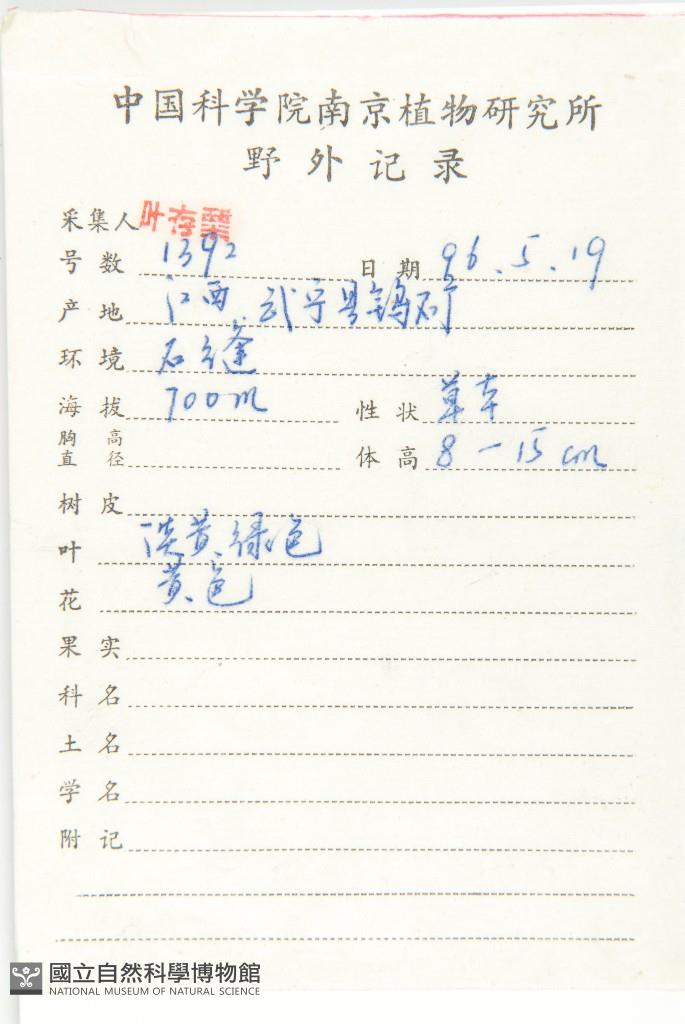 中国科学院南京植物研究所
野外记录
采集人 叶存粟
号数 1392 日期 96.5.19
产地 江西、武宁县钨矿
环境 石缝
海拔 700m 性状 草本
胸高直径 体高 8-15cm
树皮
叶 淡黄绿色
花 黄色
果实
科名
土名
学名
附记
國立自然科學博物館
NATIONAL MUSEUM OF NATURAL SCIENCE